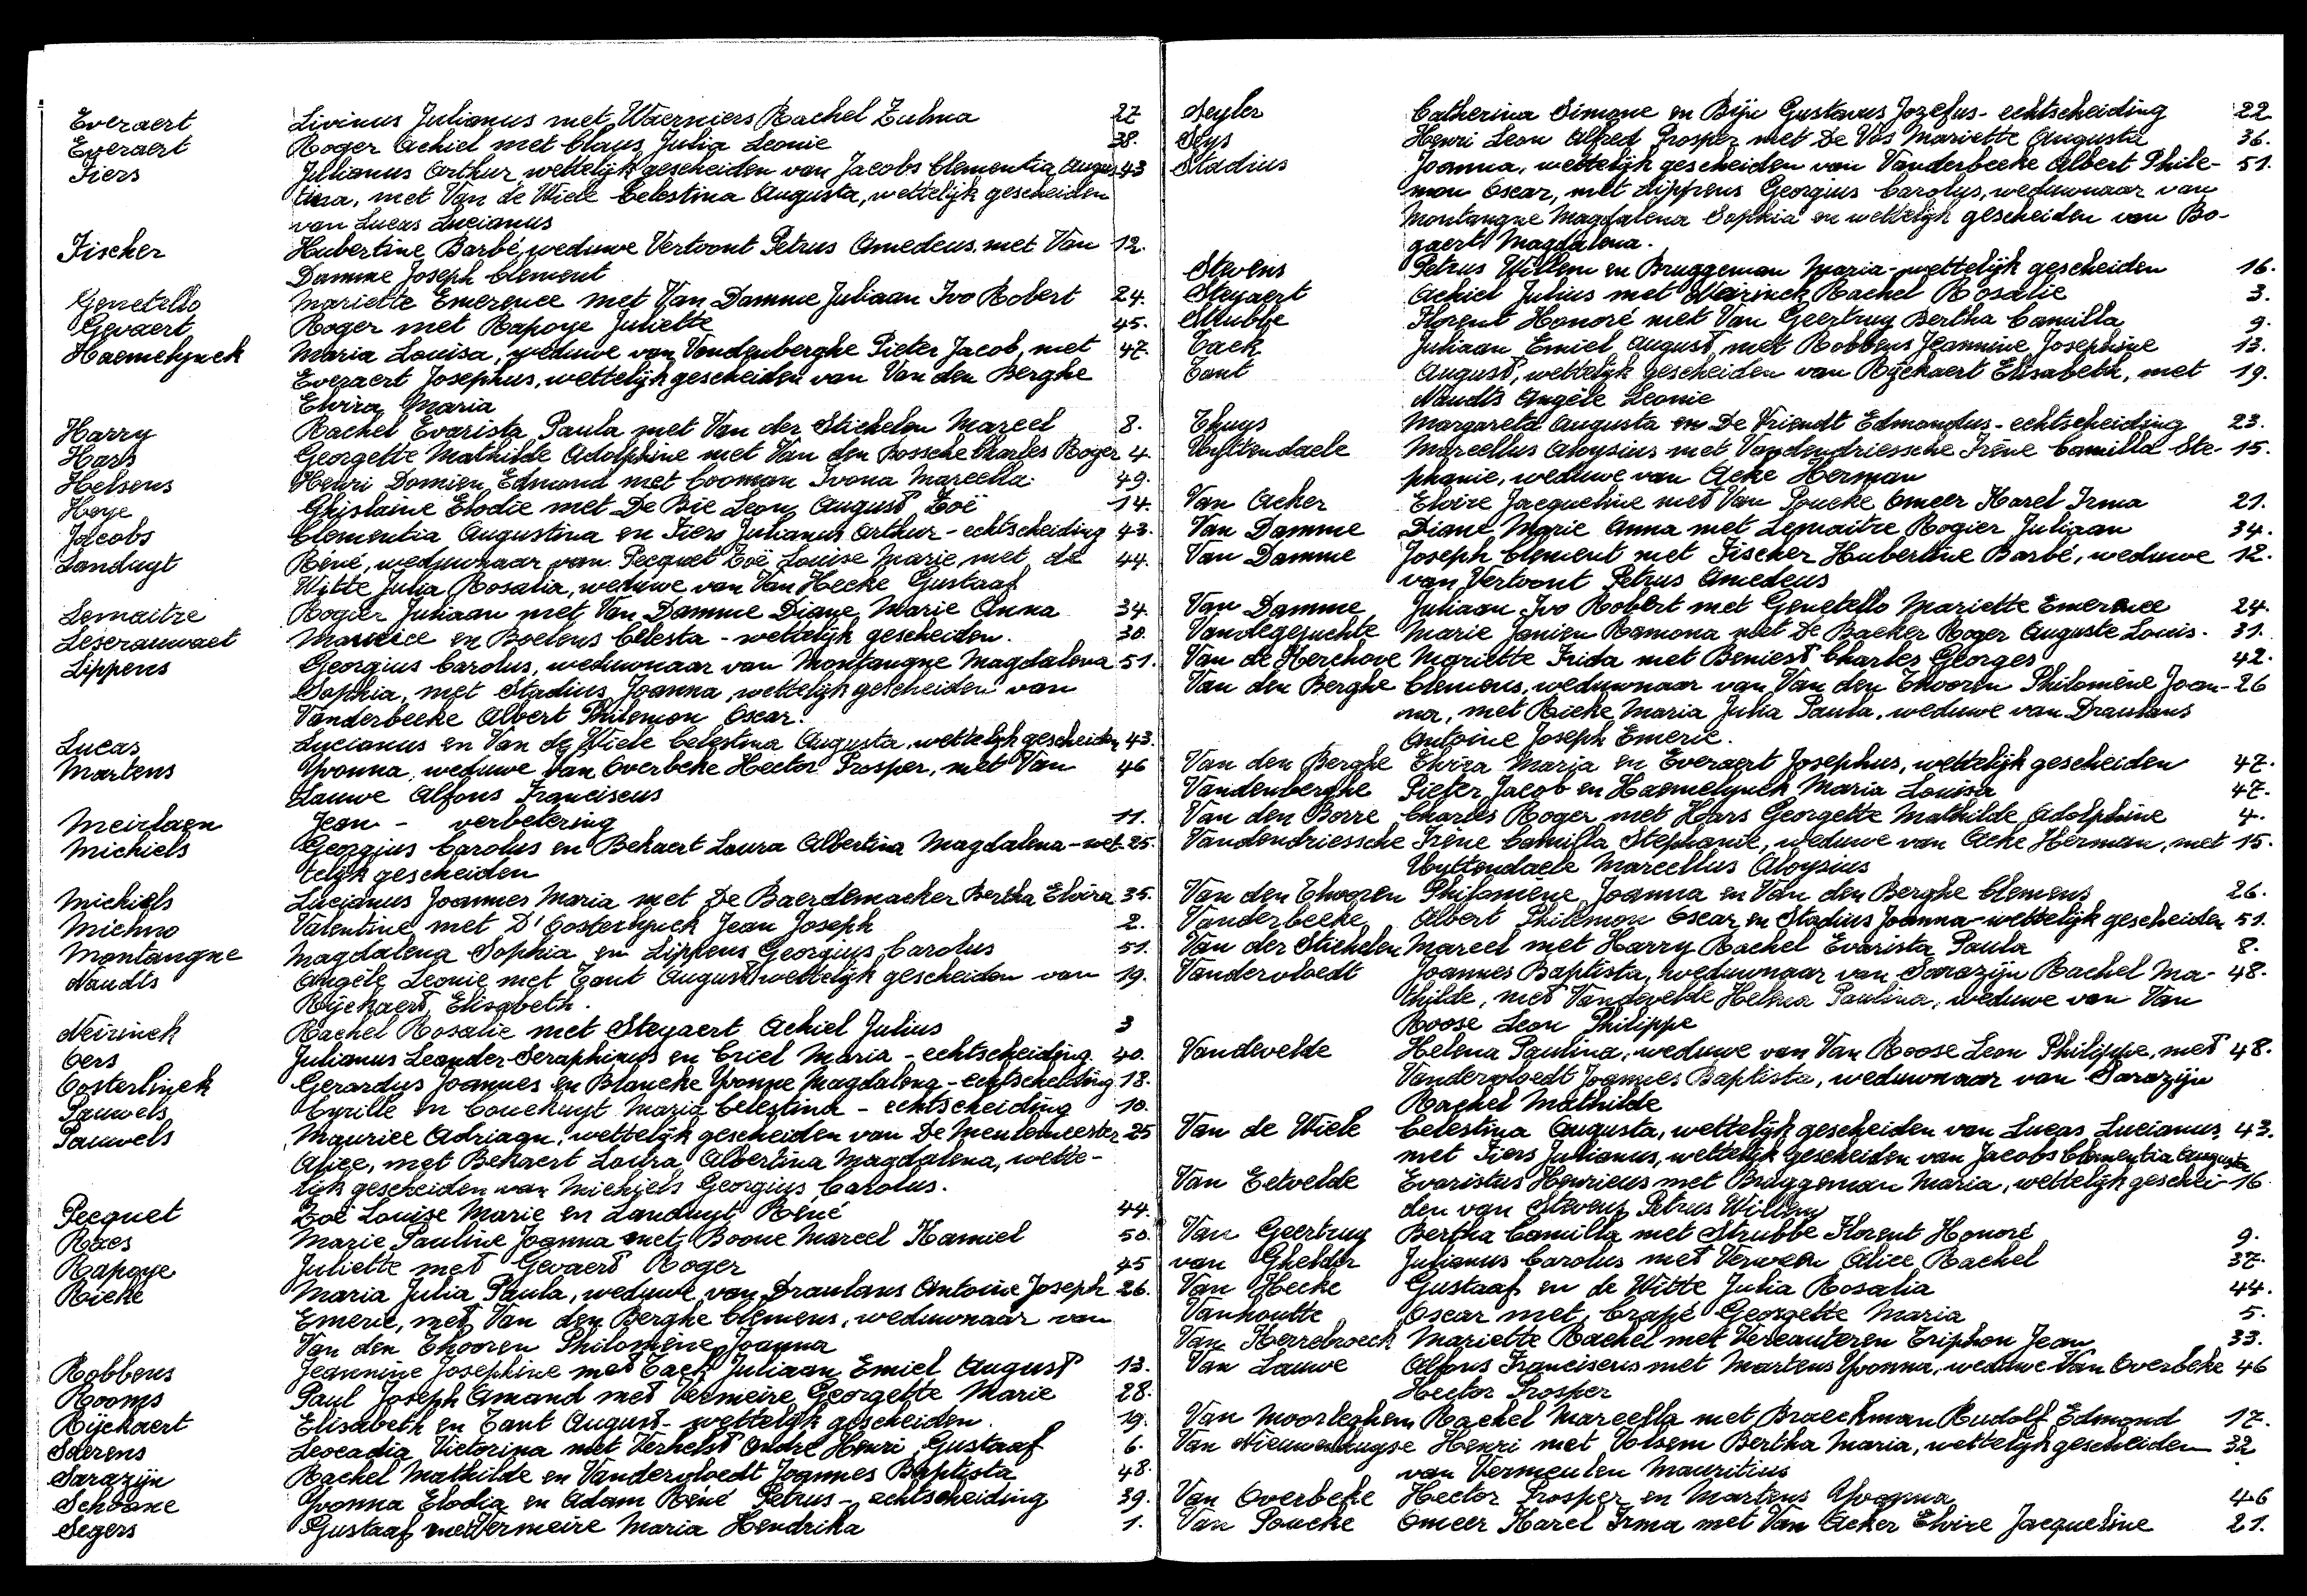 Everaert Livinus Julianus met Waerniers Rachel Zulma 27
Everaert Roger Achiel met Claus Julia Leonie 38.
Fiers Julianus Arthur wettelijk gescheiden van Jacobs Clementia Augus- 43
tina, met Van de Wiele Celestina Augusta, wettelijk gescheiden
van Lucas Lucianus
Fischer Hubertine Barbé, weduwe Vertoont Petrus Amedeus, met Van 12.
Damme Joseph Clement
Genetello Mariette Emerence met Van Damme Juliaan Ivo Robert 24.
Gevaert Roger met Rapoye Juliette 45.
Haemelynck Maria Louisa, weduwe van Vandenberghe Pieter Jacob, met 47.
Everaert Josephus, wettelijk gescheiden van Van den Berghe
Elvira Maria
Harry Rachel Evarista Paula met Van der Stichelen Marcel 8.
Hars Georgette Mathilde Adolphine met Van den Bossche Charles Roger 4.
Helsens Henri Domien Edmond met Cooman Ivona Marcella 49.
Hoye Ghislaine Elodie met De Bie Leon August Zoë 14.
Jacobs Clementia Augustina en Fiers Julianus Arthur - echtscheiding 43.
Landuyt Réné, weduwnaar van Pecquet Zoë Louise Marie, met de 44.
Witte Julia Rosalia, weduwe van Van Hecke Gustaaf
Lemaitre Rogier Juliaan met Van Damme Diane Marie Anna 34.
Leserauwaet Maurice en Boelens Celesta - wettelijk gescheiden. 30.
Lippens Georgius Carolus, weduwnaar van Montangne Magdalena 51.
Sophia, met Stadius Joanna, wettelijk gescheiden van
Vanderbeeke Albert Philemon Oscar.
Lucas Lucianus en Van de Wiele Celestina Augusta, wettelijk gescheiden 43.
Martens Yvonna, weduwe Van Overbeke Hector Prosper, met Van 46
Lauwe Alfons Franciscus
Meirlaen Jean - verbetering 11.
Michiels Georgius Carolus en Bekaert Laura Albertina Magdalena - wet- 25.
telijk gescheiden
Michiels Lucianus Joannes Maria met De Baerdemaeker Bertha Elvira 35.
Michno Valentine met D'Oosterlynck Jean Joseph 2.
Montangne Magdalena Sophia en Lippens Georgius Carolus 51.
Naudts Angèle Leonie met Tant August, wettelijk gescheiden van 19.
Rijckaert Elisabeth.
Neirinck Rachel Rosalie met Steyaert Achiel Julius 3
Oers Julianus Leander Seraphinus en Criel Maria - echtscheiding 40.
Oosterlinck Gerardus Joannes en Blancke Yvonne Magdalena - echtscheiding 18.
Pauwels Cyrille en Couckuyt Maria Celestina - echtscheiding 10.
Pauwels Maurice Adriaan, wettelijk gescheiden van De Meulemeester 25
Alice, met Bekaert Laura Albertina Magdalena, wette-
lijk gescheiden van Michiels Georgius Carolus.
Pecquet Zoë Louise Marie en Landuyt Réné 44.
Raes Marie Pauline Joanna met Boone Marcel Kamiel 50.
Rapoye Juliette met Gevaert Roger 45
Rieke Maria Julia Paula, weduwe van Draulans Antoine Joseph 26.
Emeric, met Van den Berghe Clemens, weduwnaar van
Van den Thooren Philomène Joanna
Robbens Jeannine Josephine met Tack Juliaan Emiel August 13.
Rooms Paul Joseph Amand met Vermeire Georgette Marie 28.
Rijckaert Elisabeth en Tant August - wettelijk gescheiden. 19.
Saerens Leocadia Victorina met Verhelst André Henri Gustaaf 6.
Sarazijn Rachel Mathilde en Vandervloedt Joannes Baptista 48.
Schoane Yvonna Elodia en Adam Réné Petrus - echtscheiding 39.
Segers Gustaaf met Vermeire Maria Hendrika 1.
Seyler Catherina Simone en Bije Gustavus Jozefus - echtscheiding 22
Seys Henri Leon Alfred Prosper met De Vos Mariette Augusta 36.
Stadius Joanna, wettelijk gescheiden van Vanderbeeke Albert Phile- 51.
mon Oscar, met Lippens Georgius Carolus, weduwnaar van
Montangne Magdalena Sophia en wettelijk gescheiden van Bo-
gaert Magdalena.
Stevens Petrus Willem en Bruggeman Maria - wettelijk gescheiden 16.
Steyaert Achiel Julius met Neirinck Rachel Rosalie 3.
Strubbe Florent Honoré met Van Geertruy Bertha Camilla 9.
Tack Juliaan Emiel August met Robbens Jeannine Josephine 13.
Tant August, wettelijk gescheiden van Rijckaert Elisabeth, met 19.
Naudts Angèle Leonie
Thuys Margareta Augusta en De Vriendt Edmondus - echtscheiding 23.
Uyttendaele Marcellus Aloysius met Vandendriessche Irène Camilla Ste- 15.
phanie, weduwe van Acke Herman
Van Acker Elvire Jacqueline met Van Poucke Omeer Karel Irma 21.
Van Damme Diane Marie Anna met Lemaitre Rogier Juliaan 34.
Van Damme Joseph Clement met Fischer Hubertine Barbé, weduwe 12.
van Vertoont Petrus Amedeus
Van Damme Juliaan Ivo Robert met Genetello Mariette Emerence 24.
Vandegejuchte Marie Janien Ramona met De Backer Roger Auguste Louis. 31.
Van de Kerchove Mariette Frida met Beniest Charles Georges 42.
Van den Berghe Clemens, weduwnaar van Van den Thooren Philomène Joan- 26
na, met Rieke Maria Julia Paula, weduwe van Draulans
Antoine Joseph Emeric.
Van den Berghe Elvira Maria en Everaert Josephus, wettelijk gescheiden 47.
Vandenberghe Pieter Jacob en Haemelynck Maria Louisa 47.
Van den Borre Charles Roger met Hars Georgette Mathilde Adolphine 4.
Vandendriessche Irène Camilla Stephanie, weduwe van Acke Herman, met 15.
Uyttendaele Marcellus Aloysius
Van den Thooren Philomene Joanna en Van den Berghe Clemens 26.
Vanderbeeke Albert Philemon Oscar en Stadius Joanna - wettelijk gescheiden 51.
Van der Stichelen Marcel met Harry Rachel Evarista Paula 8.
Vandervloedt Joannes Baptista, weduwnaar van Sarazijn Rachel Ma- 48.
thilde, met Vandevelde Helena Paulina, weduwe van Van
Roose Leon Philippe
Vandevelde Helena Paulina, weduwe van Van Roose Leon Philippe, met 48.
Vandervloedt Joannes Baptista, weduwnaar van Sarazijn
Rachel Mathilde
Van de Wiele Celestina Augusta, wettelijk gescheiden van Lucas Lucianus, 43.
met Fiers Julianus, wettelijk gescheiden van Jacobs Clementia Augusta
Van Eetvelde Evaristus Henricus met Bruggeman Maria, wettelijk geschei- 16
den van Stevens Petrus Willem
Van Geertruy Bertha Camilla met Strubbe Florent Honoré 9.
van Ghelder Julianus Carolus met Verween Alice Rachel 37.
Van Hecke Gustaaf en de Witte Julia Rosalia 44.
Vanhoutte Oscar met Crapé Georgette Maria 5.
Van Kerrebroeck Mariette Rachel met Vercauteren Triphon Jean 33.
Van Lauwe Alfons Franciscus met Martens Yvonna, weduwe Van Overbeke 46
Hector Prosper
Van Moorleghem Rachel Marcella met Braeckman Rudolf Edmond 17.
Van Nieuwenhuyse Henri met Volsem Bertha Maria, wettelijk gescheiden 32
van Vermeulen Mauritius
Van Overbeke Hector Prosper en Martens Yvonna 46
Van Poucke Omeer Karel Irma met Van Acker Elvire Jacqueline 21.